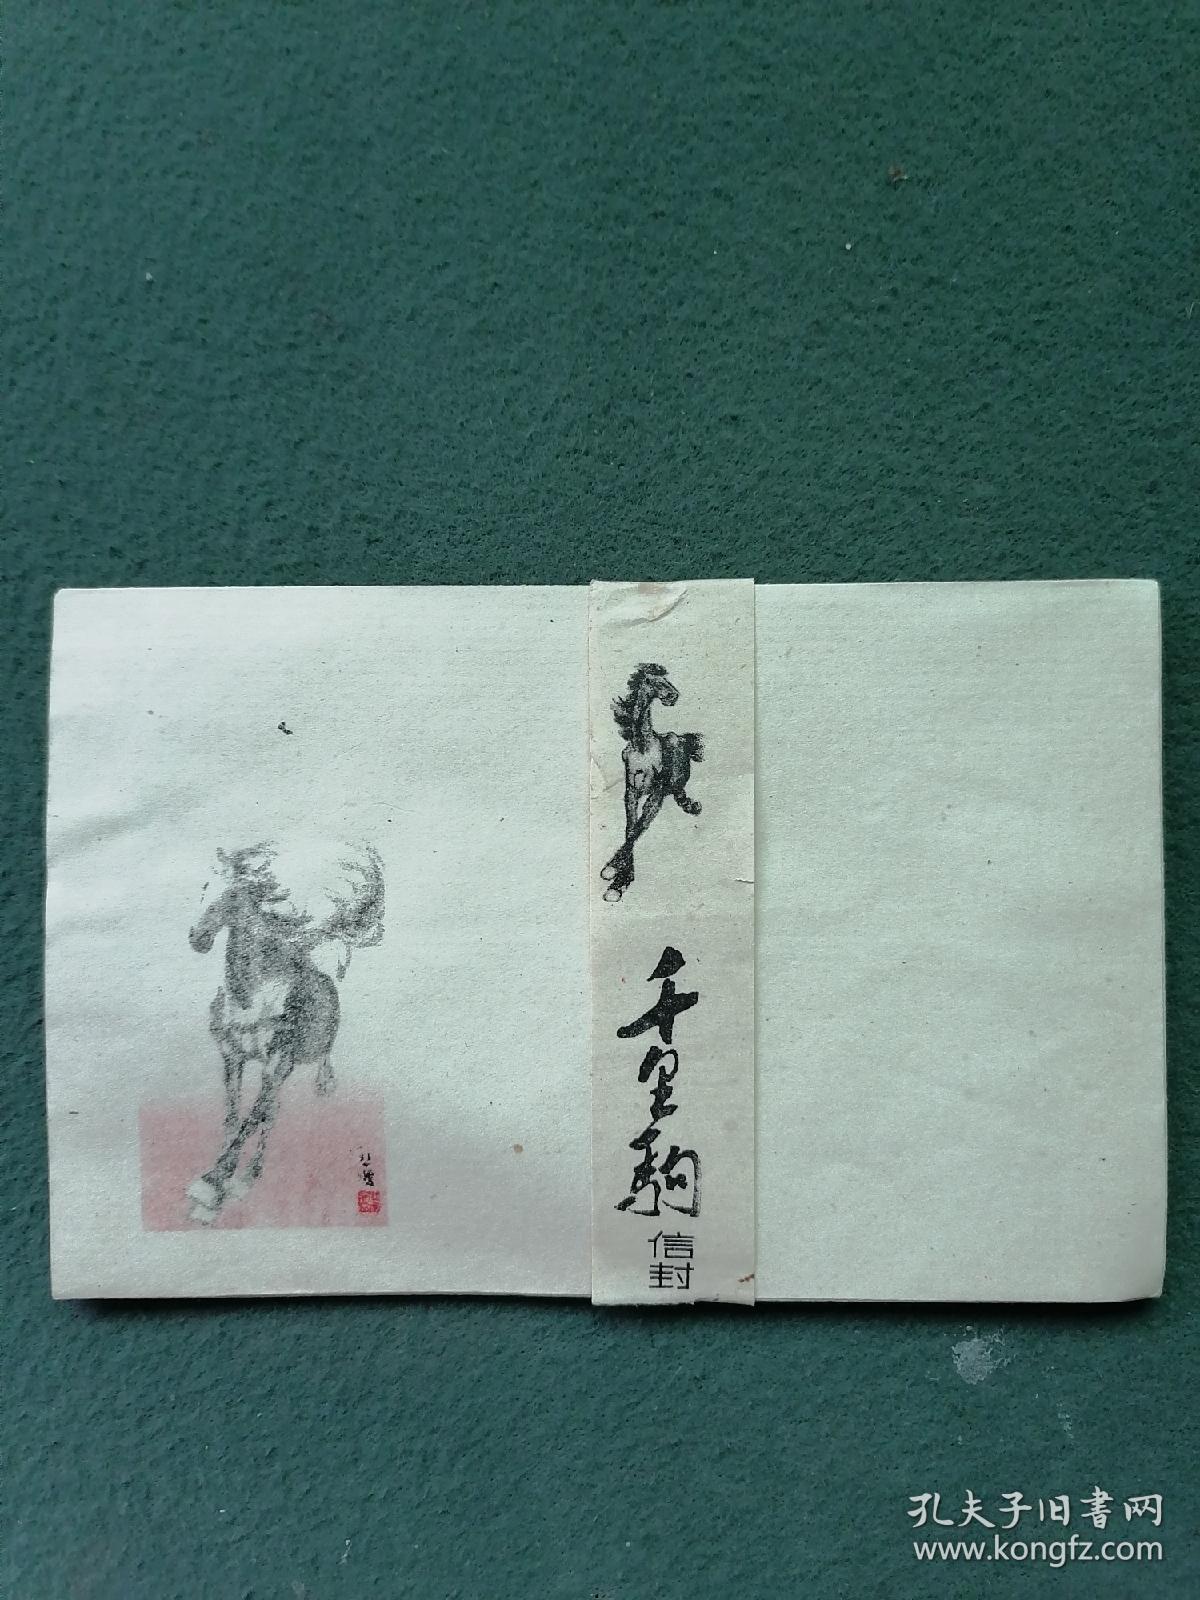 千里驹
信封
悲鸿
孔夫子旧书网
www.kongfz.com